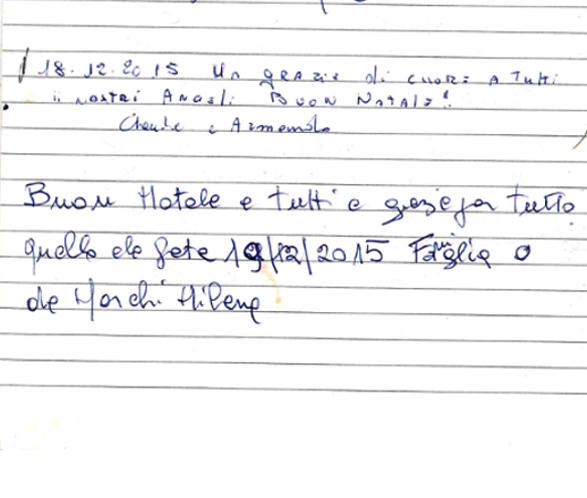 18.12.2015 Un grazie di cuore a Tutti
i nostri Angeli Buon Natale!
e
Buon Natale e tutti e grazie per tutto
quello che fate 19/12/2015 Famiglia
de Marchi Milena